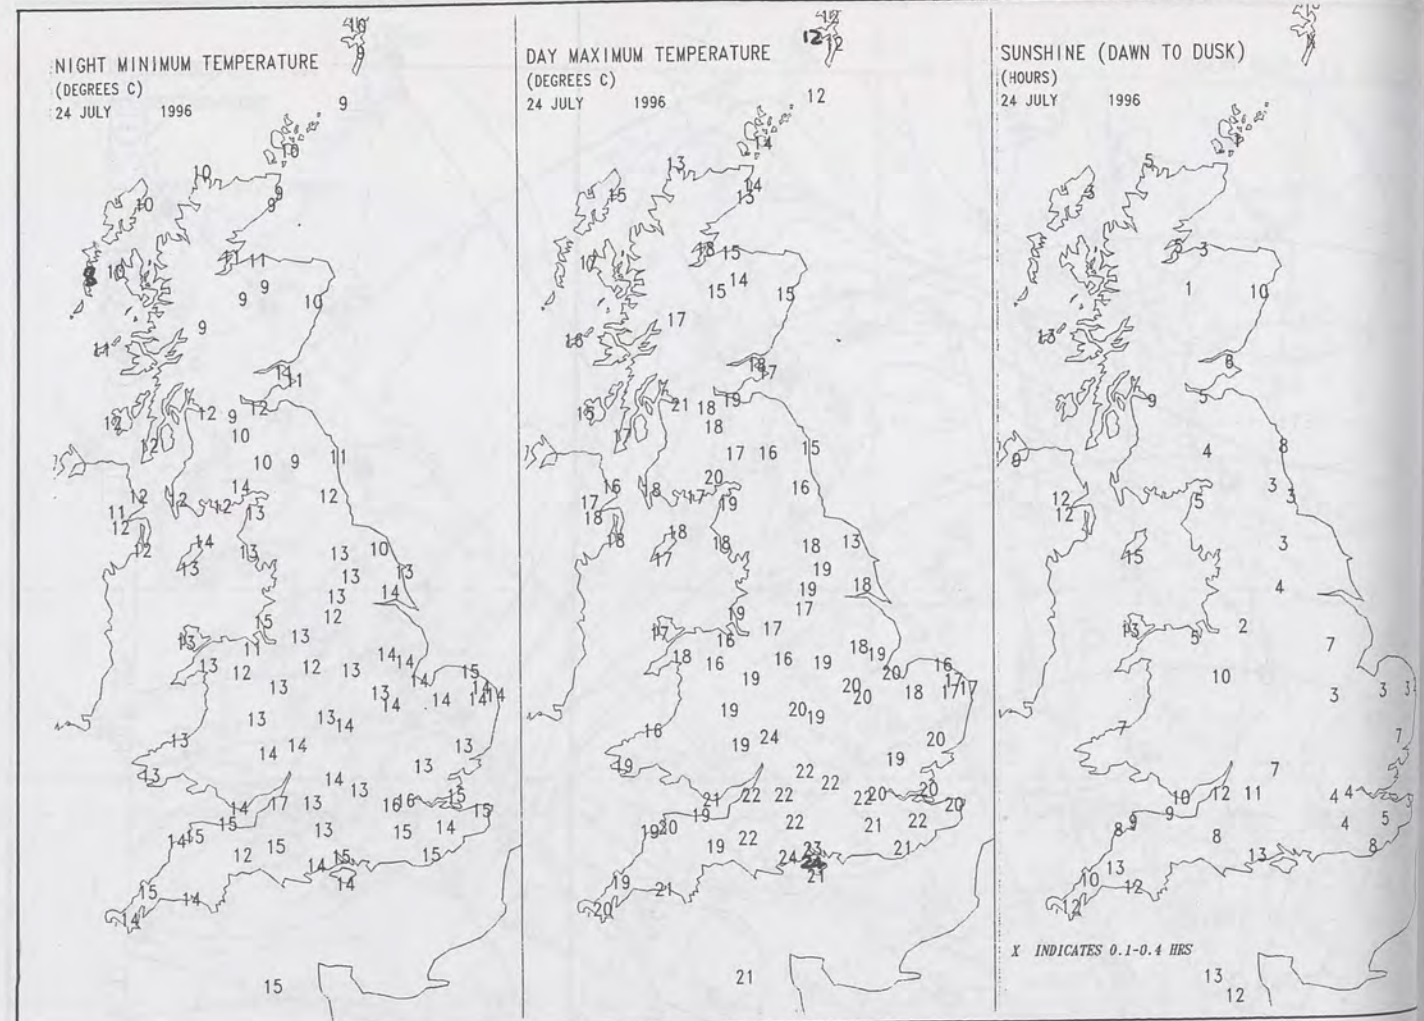 NIGHT MINIMUM TEMPERATURE
(DEGREES C)
24 JULY 1996
10
9
9
10
10
10
9
9
11
11
10
9
9
10
9
11
11
12
9
12
12
10
12
10
9
11
14
12
12
12
12
13
11
12
12
14
13
13
13
10
13
13
14
13
12
15
13
13
11
13
12
12
13
14
14
14
15
14
14
14
14
13
13
14
13
13
14
13
14
14
13
13
13
14
13
13
14
17
13
16
16
15
15
15
14
15
13
14
14
15
12
15
14
15
14
15
14
14
15
DAY MAXIMUM TEMPERATURE
(DEGREES C)
24 JULY 1996
12
12
12
12
14
13
14
13
15
18
15
14
15
15
17
16
18
17
21
18
19
18
17
17
16
15
20
16
16
17
17
19
18
18
18
17
18
18
13
19
19
18
17
19
17
16
17
18
16
16
19
18
19
20
16
17
17
17
18
20
20
19
19
20
19
16
19
24
20
19
19
22
22
21
22
22
22
20
20
20
19
20
19
22
22
21
22
21
19
24
23
24
21
19
21
20
21
SUNSHINE (DAWN TO DUSK)
(HOURS)
24 JULY 1996
X
5
3
3
1
10
13
6
9
5
4
8
9
12
12
5
3
3
15
3
4
13
5
2
7
10
3
3
3
7
7
7
10
12
11
4
4
3
9
9
8
8
4
5
8
13
13
10
12
12
X INDICATES 0.1-0.4 HRS
13
12